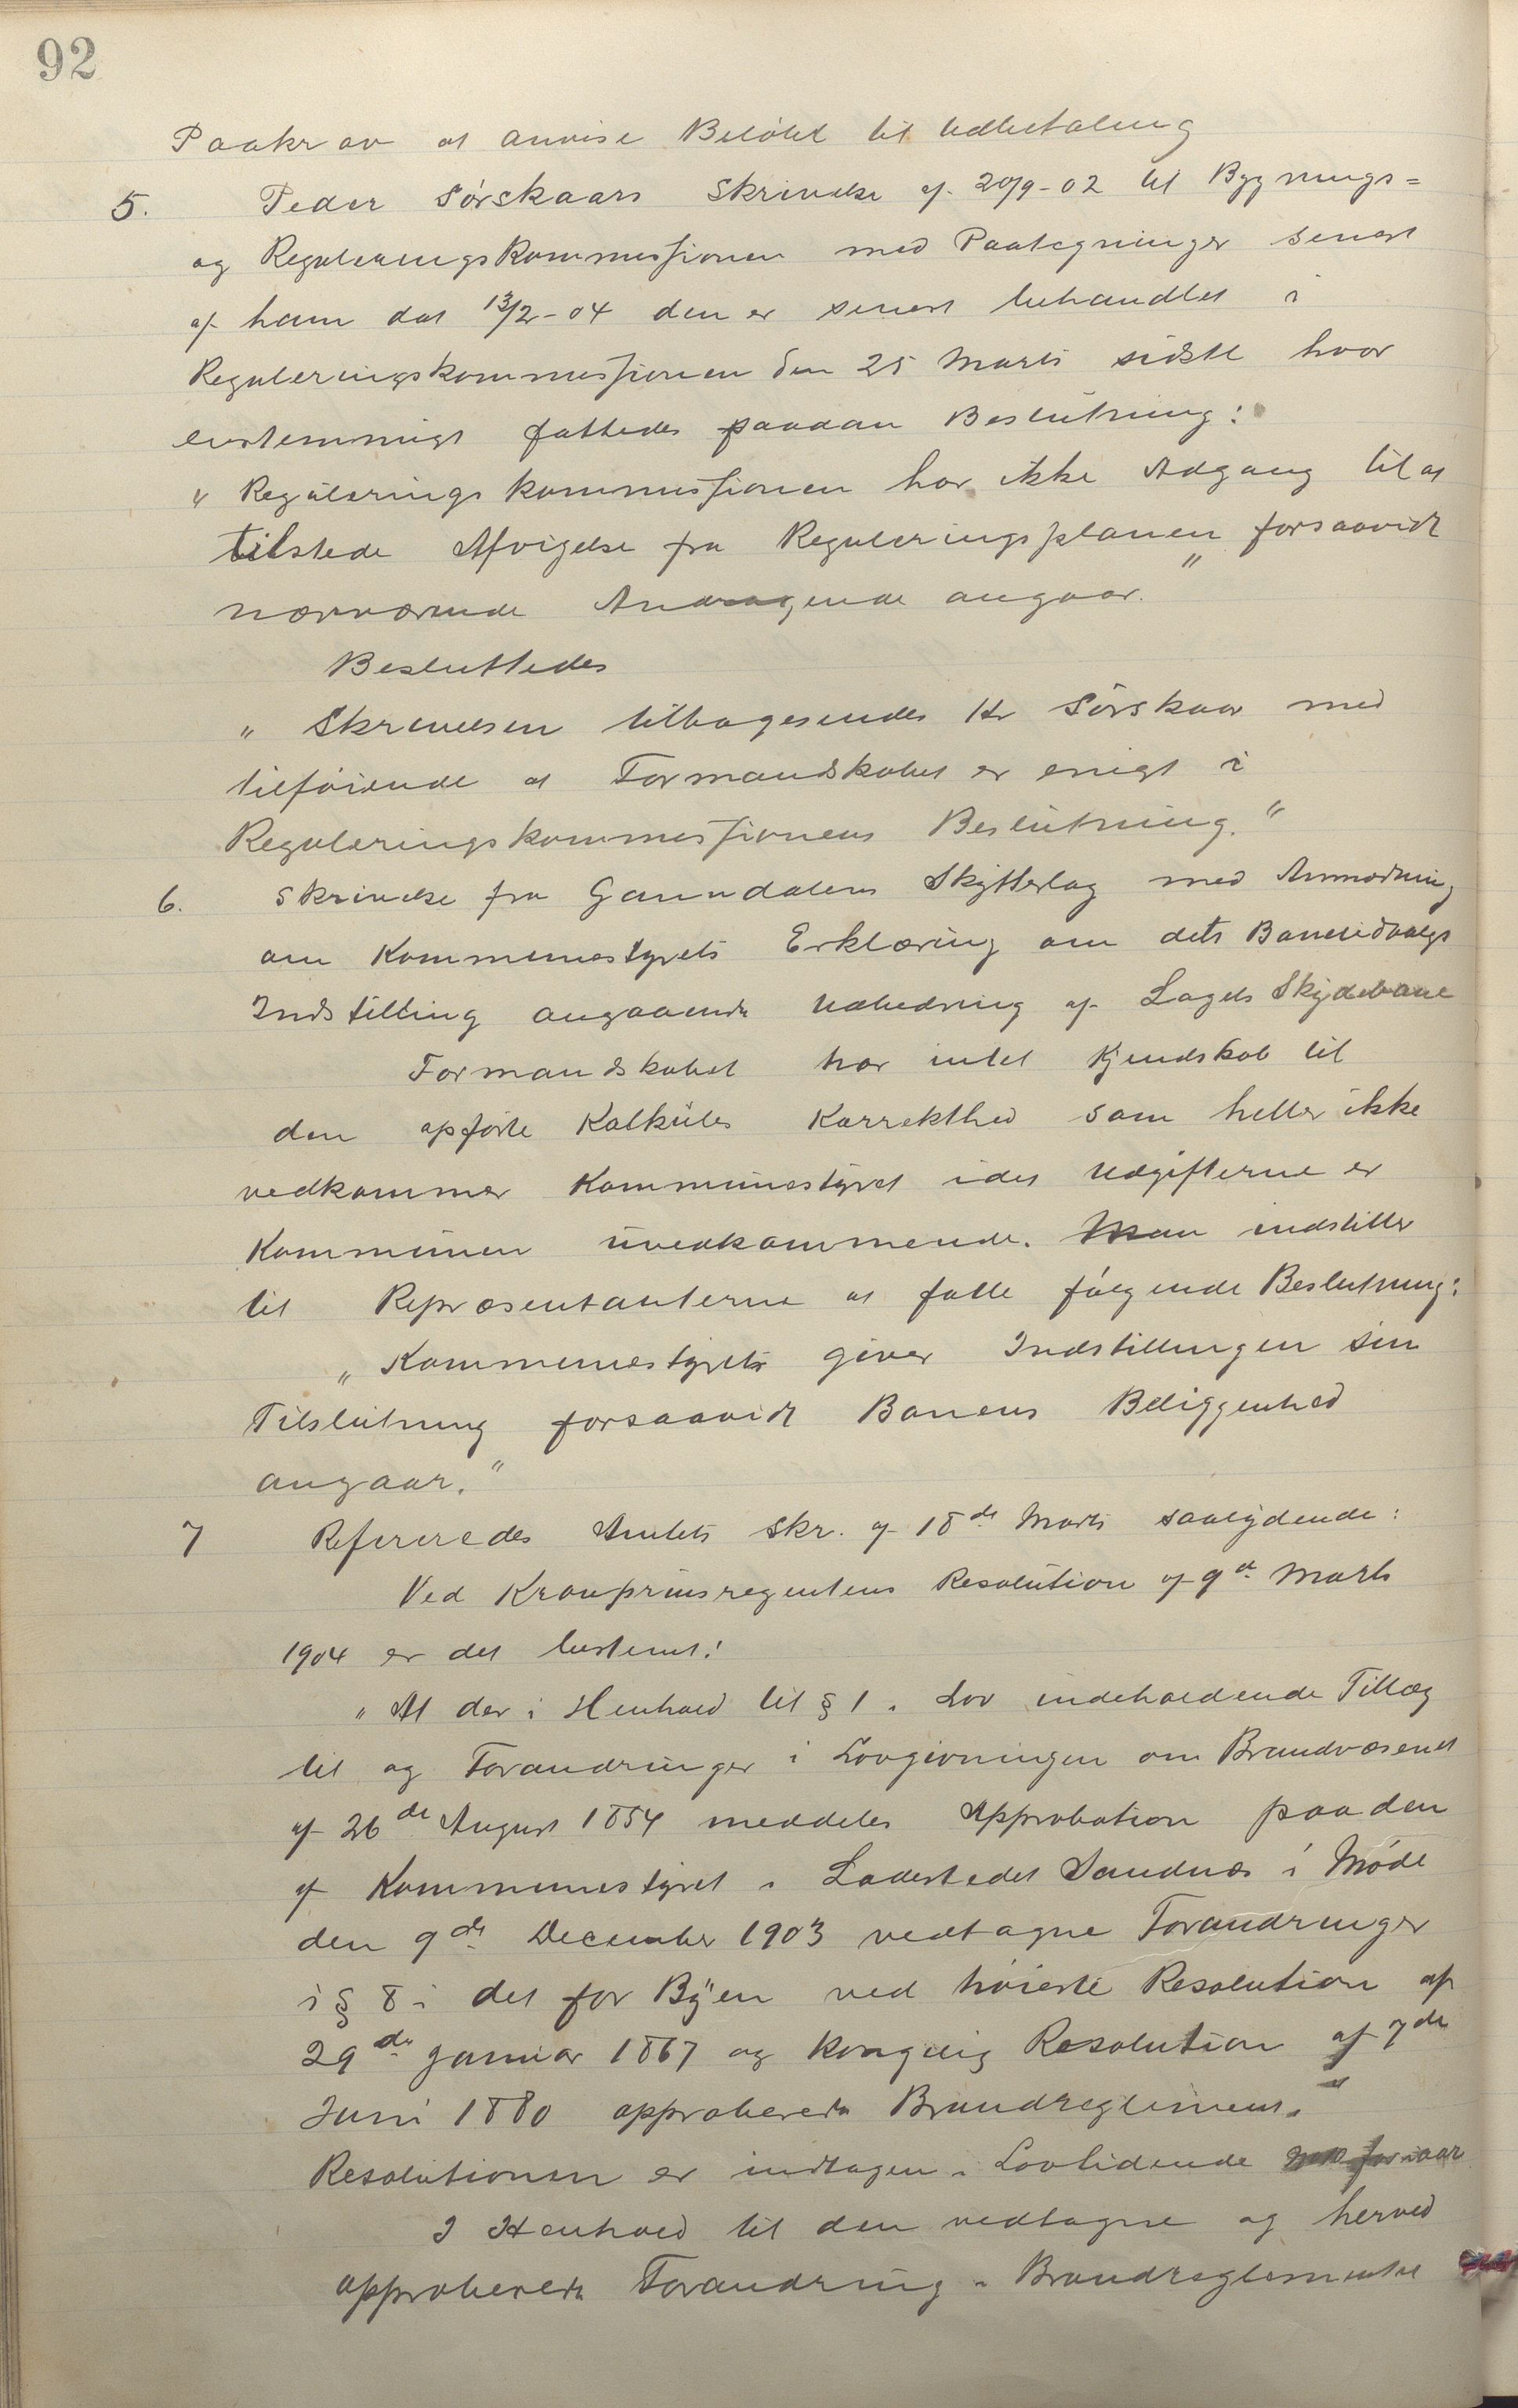 92
Paakrav at anvise Beløbet til Udbetaling
5. Peder Sørskaars Skrivelse af 20/9-02 til Bygnings=
og Reguleringskommissionen med Paategninger senest
af ham dat 13/2-04 den er senest behandlet i
Reguleringskommissionen den 25 Marts sidstl hvor
enstemmigt fattedes saadan Beslutning:
"Reguleringskommissionen har ikke Adgang til at
tilstede Afvigelse fra Reguleringsplanen forsaavidt
nærværende Andragende angaar."
Besluttedes
"Skrivelsen tilbagesendes Hr Sørskaar med
tilføiende at Formandskabet er enigt i
Reguleringskommissionens Beslutning."
6. Skrivelse fra Ganndalens Skytterlag med Anmodning
om Kommunestyrets Erklæring om dets Baneudvalgs
Indstilling angaaende Udbedring af Lagets Skydebane
Formandskabet har intet Kjendskab til
den opførte Kalküles Korrekthed som heller ikke
vedkommer Kommunestyret idet Udgifterne er
Kommunen uvedkommende. Man indstiller
til Repræsentanterne at fatte følgende Beslutning:
"Kommunestyret giver Indstillingen sin
Tilslutning forsaavidt Banens Beliggenhed
angaar."
7 Refereredes Amtets Skr. af 18de Marts saalydende:
Ved Kronprinsregentens Resolution af 9de Marts
1904 er det bestemt:
"At der i Henhold til § 1 i Lov indeholdende Tillæg
til og Forandringer i Lovgivningen om Brandvæsenet
af 26de August 1854 meddeles Approbation paa den
af Kommunestyret i Ladestedet Sandnæs i Møde
den 9de December 1903 vedtagne Forandringer
i § 8 i det for Byen ved høieste Resolution af
29de Januar 1867 og kongelig Resolution af 7de
Juni 1880 approberede Brandreglement."
Resolutionen er indtagen i Lovtidende
I Henhold til den vedtagne og herved
approberede Forandring i Brandreglementet